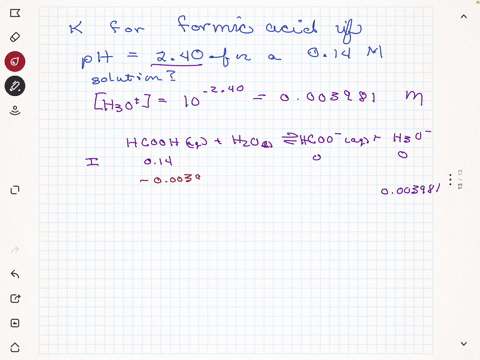 K for formic acid if
pH = 2.40 for a 0.14 M
solution?
[H3O+] = 10^-2.40 = 0.003981 M
HCOOH (aq) + H2O(l) ⇌ HCOO^- (aq) + H3O^-
I 0.14 0 0
- 0.0039
0.003981